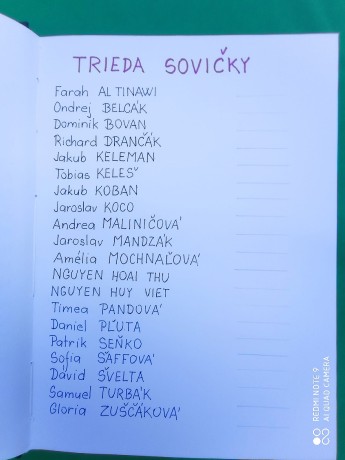 TRIEDA SOVIČKY
Farah AL TINAWI
Ondrej BELCÁK
Dominik BOVAN
Richard DRANČÁK
Jakub KELEMAN
Tobias KELEŠ
Jakub KOBAN
Jaroslav KOCO
Andrea MALINIČOVÁ
Jaroslav MANDZÁK
Amélia MOCHNAĽOVÁ
NGUYEN HOAI THU
NGUYEN HUY VIET
Timea PANDOVÁ
Daniel PĽUTA
Patrik SEŇKO
Sofia ŠAFFOVÁ
Dávid ŠVELTA
Samuel TURBÁK
Gloria ZUŠČÁKOVÁ
REDMI NOTE 9
AI QUAD CAMERA